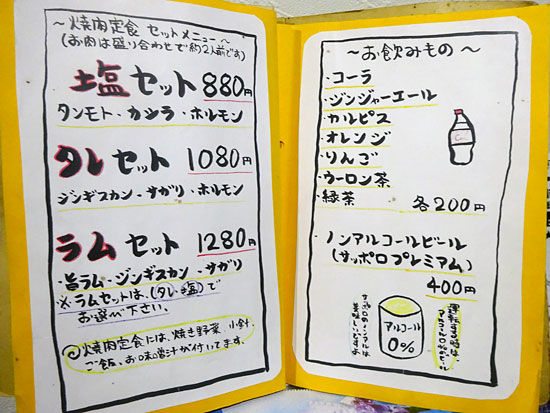 ~焼肉定食 セットメニュー~
(お肉は盛り合わせで約2人前です)
塩セット 880円
タンモト・カシラ・ホルモン
タレセット 1080円
ジンギスカン・サガリ・ホルモン
ラムセット 1280円
・旨ラム・ジンギスカン・サガリ
※ラムセットは、(タレ・塩)で
お選べ下さい。
◎焼肉定食には、焼き野菜、小鉢、
ご飯、お味噌汁が付いてます。
~お飲みもの~
・コーラ
・ジンジャーエール
・カルピス
・オレンジ
・りんご
・ウーロン茶
・緑茶 各200円
・ノンアルコールビール
(サッポロプレミアム)
400円
アルコール
0%
美味しいですよ